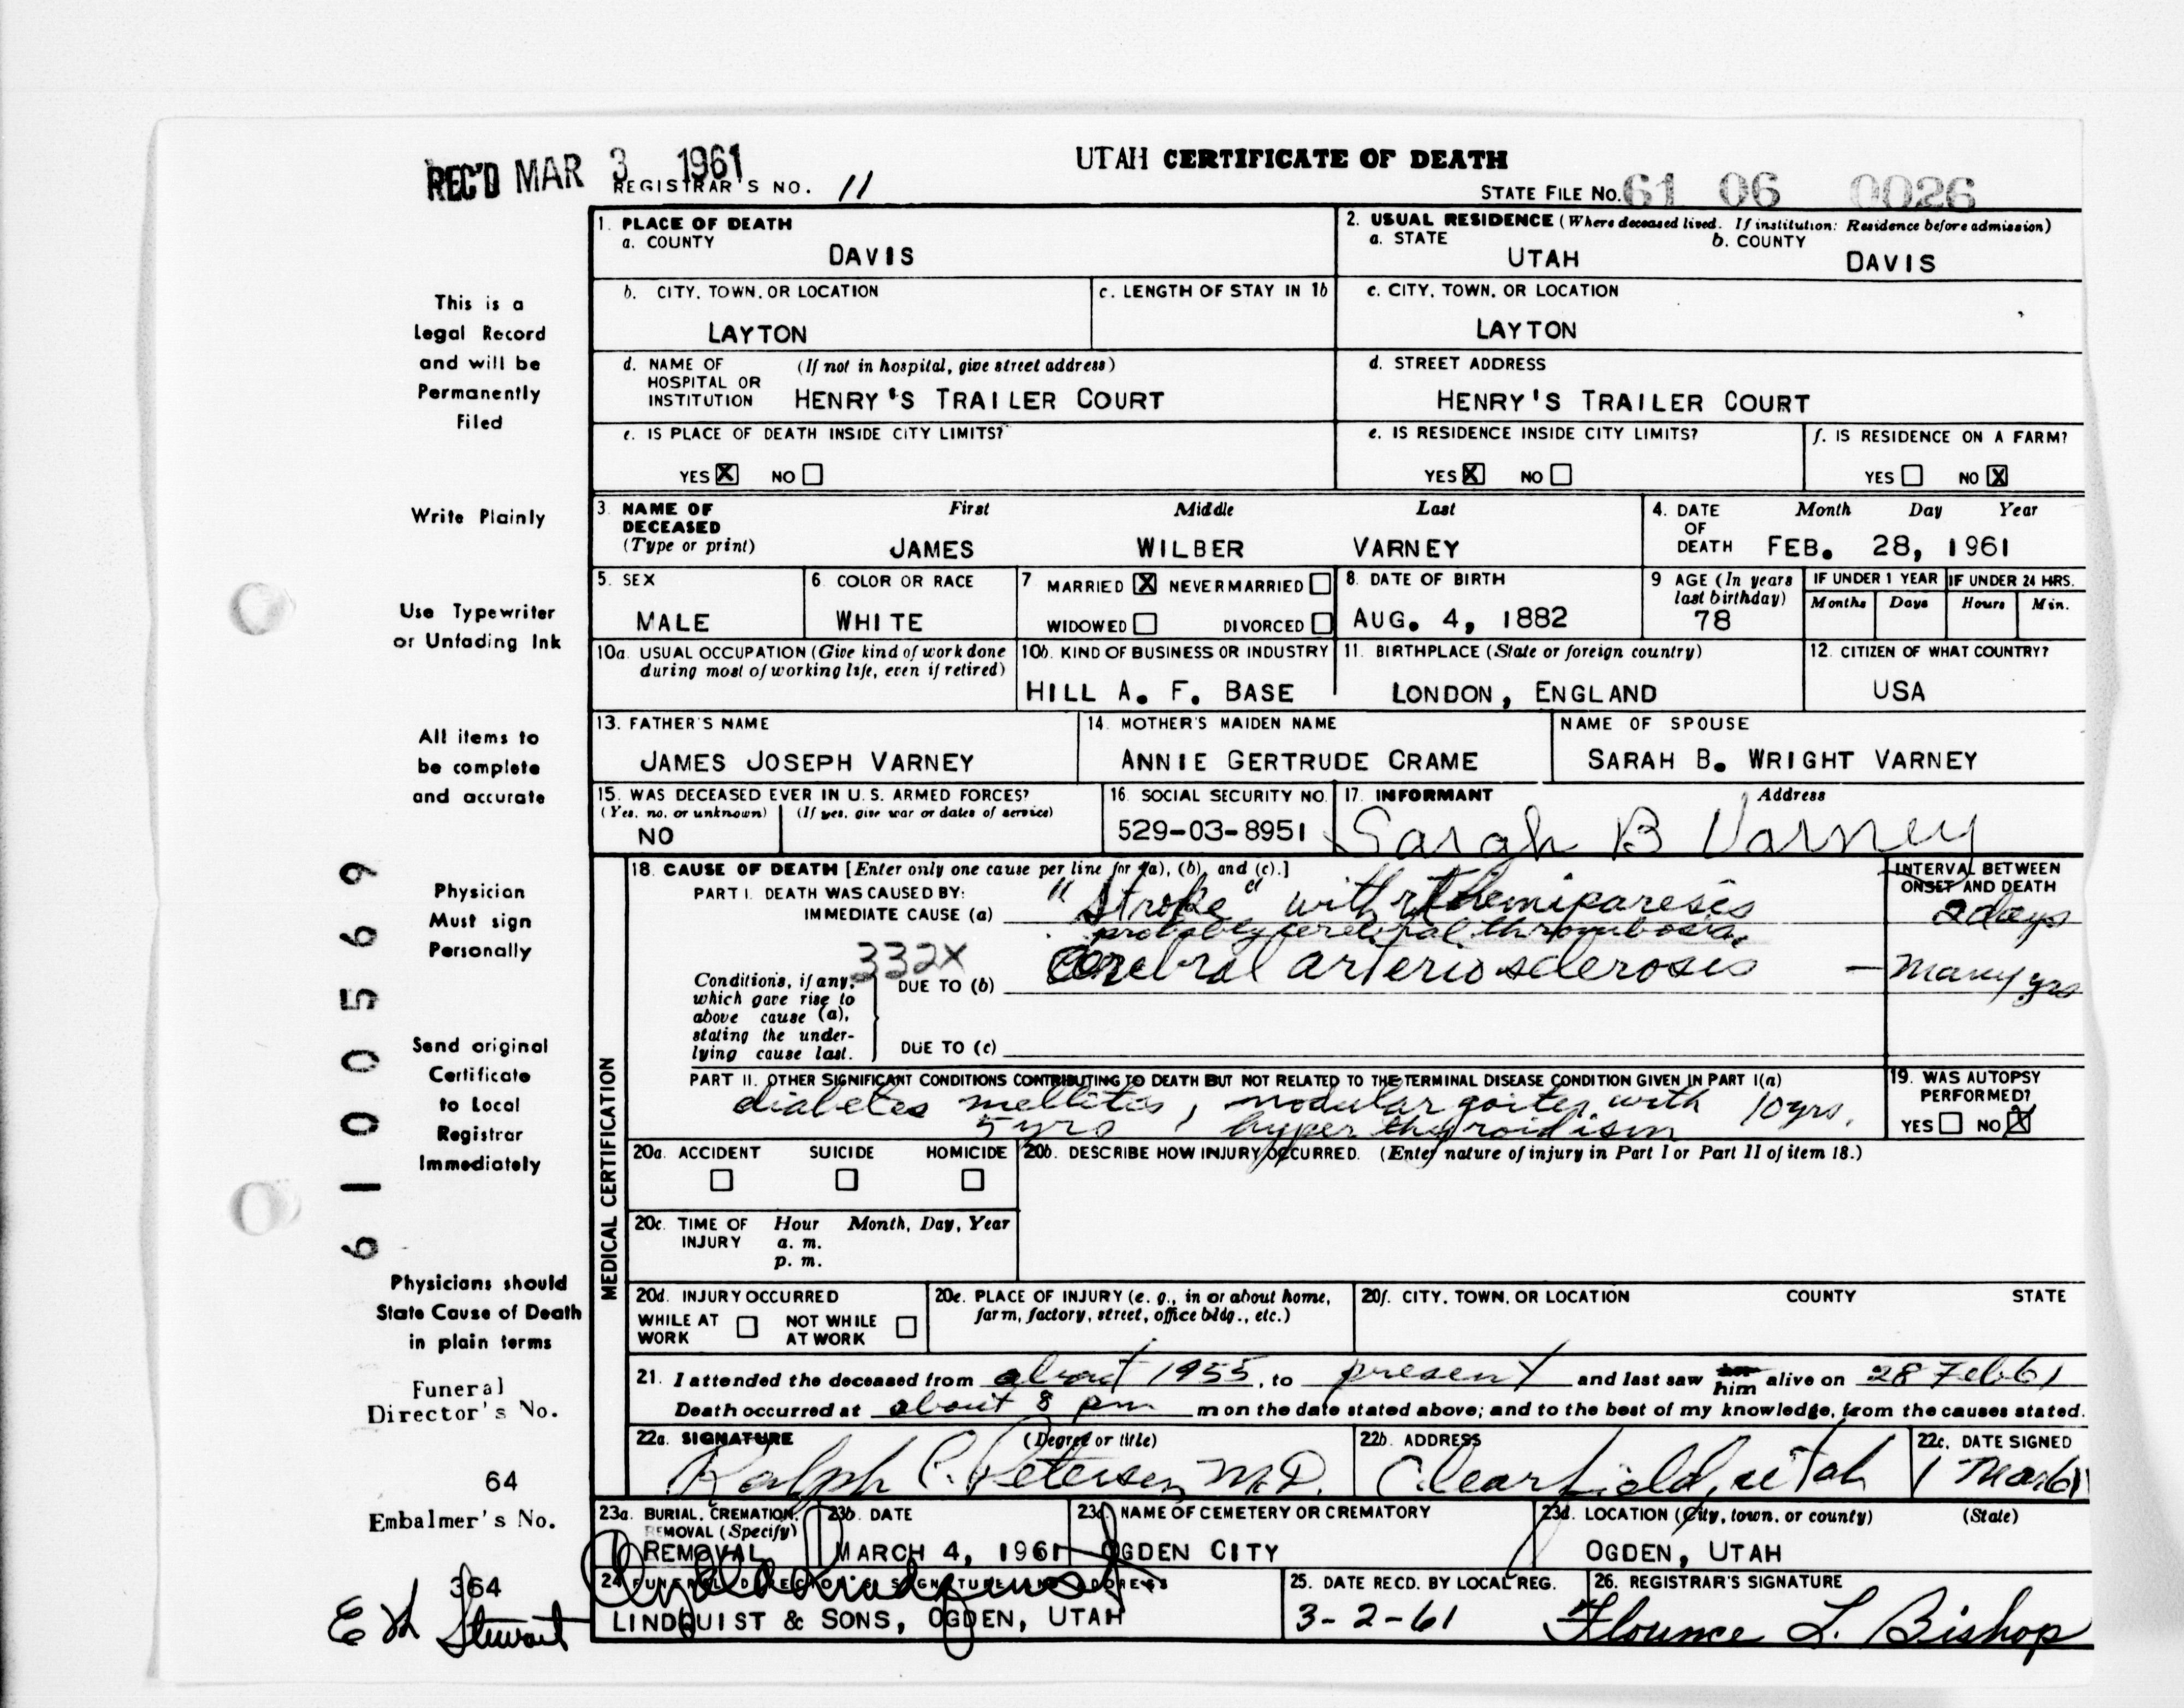 REC'D MAR 3 1961
UTAH CERTIFICATE OF DEATH
REGISTRAR'S NO. 11
STATE FILE NO. 61 06 0026
1. PLACE OF DEATH
a. COUNTY
DAVIS
2. USUAL RESIDENCE (Where deceased lived. If institution: Residence before admission)
a. STATE
UTAH
b. COUNTY
DAVIS
b. CITY, TOWN, OR LOCATION
LAYTON
c. LENGTH OF STAY IN 1b
c. CITY, TOWN, OR LOCATION
LAYTON
d. NAME OF HOSPITAL OR INSTITUTION
(If not in hospital, give street address)
HENRY'S TRAILER COURT
d. STREET ADDRESS
HENRY'S TRAILER COURT
e. IS PLACE OF DEATH INSIDE CITY LIMITS?
YES X NO
e. IS RESIDENCE INSIDE CITY LIMITS?
YES X NO
f. IS RESIDENCE ON A FARM?
YES NO X
3. NAME OF DECEASED
(Type or print)
First Middle Last
JAMES WILBER VARNEY
4. DATE OF DEATH
Month Day Year
FEB. 28, 1961
5. SEX
MALE
6 COLOR OR RACE
WHITE
7 MARRIED X NEVER MARRIED
WIDOWED DIVORCED
8. DATE OF BIRTH
AUG. 4, 1882
9 AGE (In years last birthday)
78
IF UNDER 1 YEAR
Months Days
IF UNDER 24 HRS.
Hours Min.
10a. USUAL OCCUPATION (Give kind of work done during most of working life, even if retired)
10b. KIND OF BUSINESS OR INDUSTRY
HILL A. F. BASE
11. BIRTHPLACE (State or foreign country)
LONDON, ENGLAND
12. CITIZEN OF WHAT COUNTRY?
USA
13. FATHER'S NAME
JAMES JOSEPH VARNEY
14. MOTHER'S MAIDEN NAME
ANNIE GERTRUDE CRAME
NAME OF SPOUSE
SARAH B. WRIGHT VARNEY
15. WAS DECEASED EVER IN U.S. ARMED FORCES?
(Yes, no, or unknown) (If yes, give war or dates of service)
NO
16. SOCIAL SECURITY NO.
529-03-8951
17. INFORMANT Address
Sarah B Varney
MEDICAL CERTIFICATION
18. CAUSE OF DEATH [Enter only one cause per line for (a), (b), and (c).]
PART I. DEATH WAS CAUSED BY:
IMMEDIATE CAUSE (a)
"Stroke" with rt hemiparesis
probably cerebral thrombosis.
332X
Conditions, if any, which gave rise to above cause (a), stating the underlying cause last.
DUE TO (b) Cerebral arteriosclerosis
DUE TO (c)
INTERVAL BETWEEN ONSET AND DEATH
2 days
— many yrs
PART II. OTHER SIGNIFICANT CONDITIONS CONTRIBUTING TO DEATH BUT NOT RELATED TO THE TERMINAL DISEASE CONDITION GIVEN IN PART I(a)
diabetes mellitus, nodular goiter with 10 yrs.
5 yrs , hyperthyroidism
19. WAS AUTOPSY PERFORMED?
YES NO X
20a. ACCIDENT SUICIDE HOMICIDE
20b. DESCRIBE HOW INJURY OCCURRED. (Enter nature of injury in Part I or Part II of item 18.)
20c. TIME OF INJURY
Hour Month, Day, Year
a. m.
p. m.
20d. INJURY OCCURRED
WHILE AT WORK NOT WHILE AT WORK
20e. PLACE OF INJURY (e. g., in or about home, farm, factory, street, office bldg., etc.)
20f. CITY, TOWN, OR LOCATION COUNTY STATE
21. I attended the deceased from about 1955, to present and last saw her him alive on 28 Feb 61
Death occurred at about 8 pm m on the date stated above; and to the best of my knowledge, from the causes stated.
22a. SIGNATURE (Degree or title)
Ralph C. Petersen M.D.
22b. ADDRESS
Clearfield, Utah
22c. DATE SIGNED
1 Mar 61
23a. BURIAL, CREMATION, REMOVAL (Specify)
REMOVAL
23b. DATE
MARCH 4, 1961
23c. NAME OF CEMETERY OR CREMATORY
OGDEN CITY
23d. LOCATION (City, town, or county) (State)
OGDEN, UTAH
24 FUNERAL DIRECTOR'S SIGNATURE AND ADDRESS
LINDQUIST & SONS, OGDEN, UTAH
25. DATE RECD. BY LOCAL REG.
3-2-61
26. REGISTRAR'S SIGNATURE
Flounce L. Bishop
This is a
Legal Record
and will be
Permanently
Filed
Write Plainly
Use Typewriter
or Unfading Ink
All items to
be complete
and accurate
Physician
Must sign
Personally
Send original
Certificate
to Local
Registrar
Immediately
Physicians should
State Cause of Death
in plain terms
Funeral
Director's No.
64
Embalmer's No.
364
Stewart
6100569